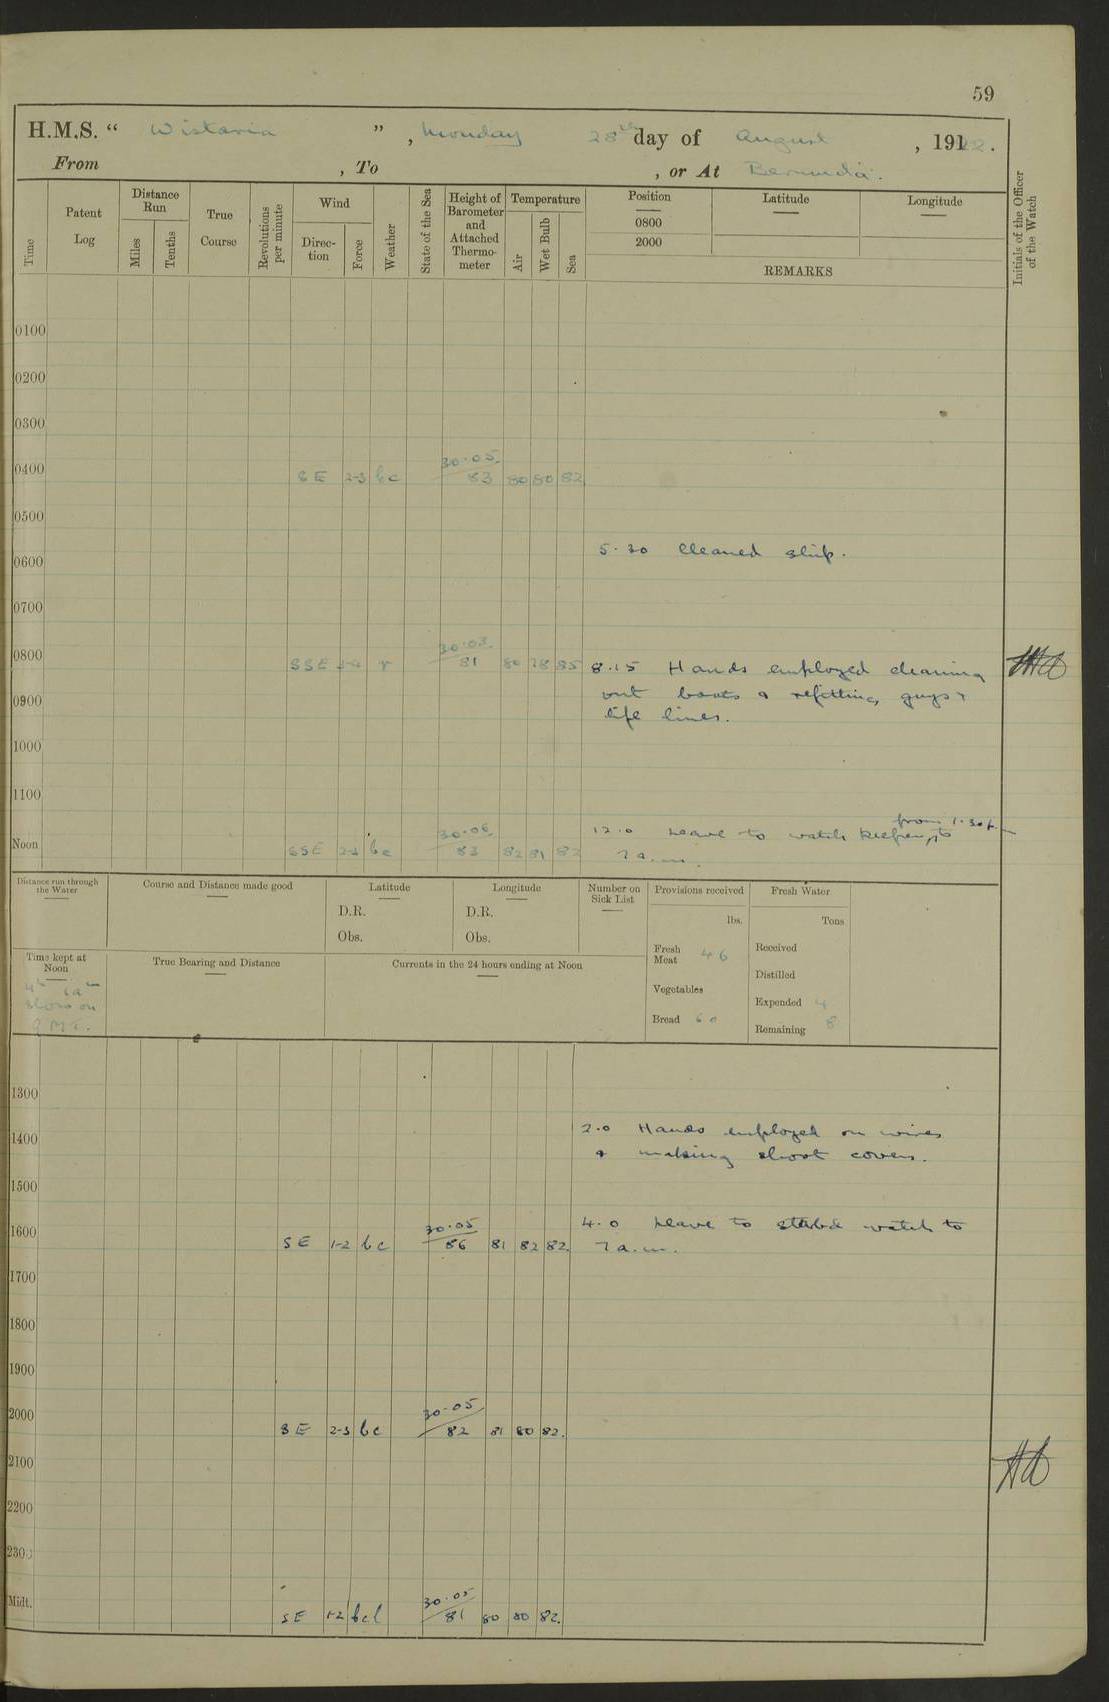 59
H.M.S. “ Wistaria ” , Monday 28th day of August , 1922.
From , To , or At Bermuda.
Time
Patent Log
Distance Run
Miles
Tenths
True Course
Revolutions per minute
Wind
Direc-tion
Force
Weather
State of the Sea
Height of Barometer and Attached Thermo-meter
Temperature
Air
Wet Bulb
Sea
Position
0800
2000
Latitude
Longitude
REMARKS
Initials of the Officer of the Watch
0100
0200
0300
0400 SE 2-3 bc 30.05 83 80 80 82
0500
5.30 Cleaned ship.
0600
0700
0800 SSE r 30.03 81 80 78 85 8.15 Hands employed cleaning
out boats & refitting guys &
0900
life lines.
1000
1100
from 1.30 p.m
Noon SSE 2-3 bc 30.06 83 82 81 82 12.0 Leave to watch keepers, to
7 a.m.
Distance run through the Water
Course and Distance made good
Latitude
D.R.
Obs.
Longitude
D.R.
Obs.
Number on Sick List
Provisions received
lbs.
Fresh Meat 46
Vegetables
Bread 60
Fresh Water
Tons
Received
Distilled
Expended 4
Remaining 8
Time kept at Noon
slow on
G.M.T.
True Bearing and Distance
Currents in the 24 hours ending at Noon
1300
1400 2.0 Hands employed on wires
& making shoot covers.
1500
1600 SE 1-2 bc 30.05 86 81 82 82. 4.0 Leave to starbd watch to
7 a.m.
1700
1800
1900
2000 SE 2-3 bc 30.05 82 81 80 82.
2100
2200
2300
Midt. SE 1-2 bcl 30.05 81 80 80 82.